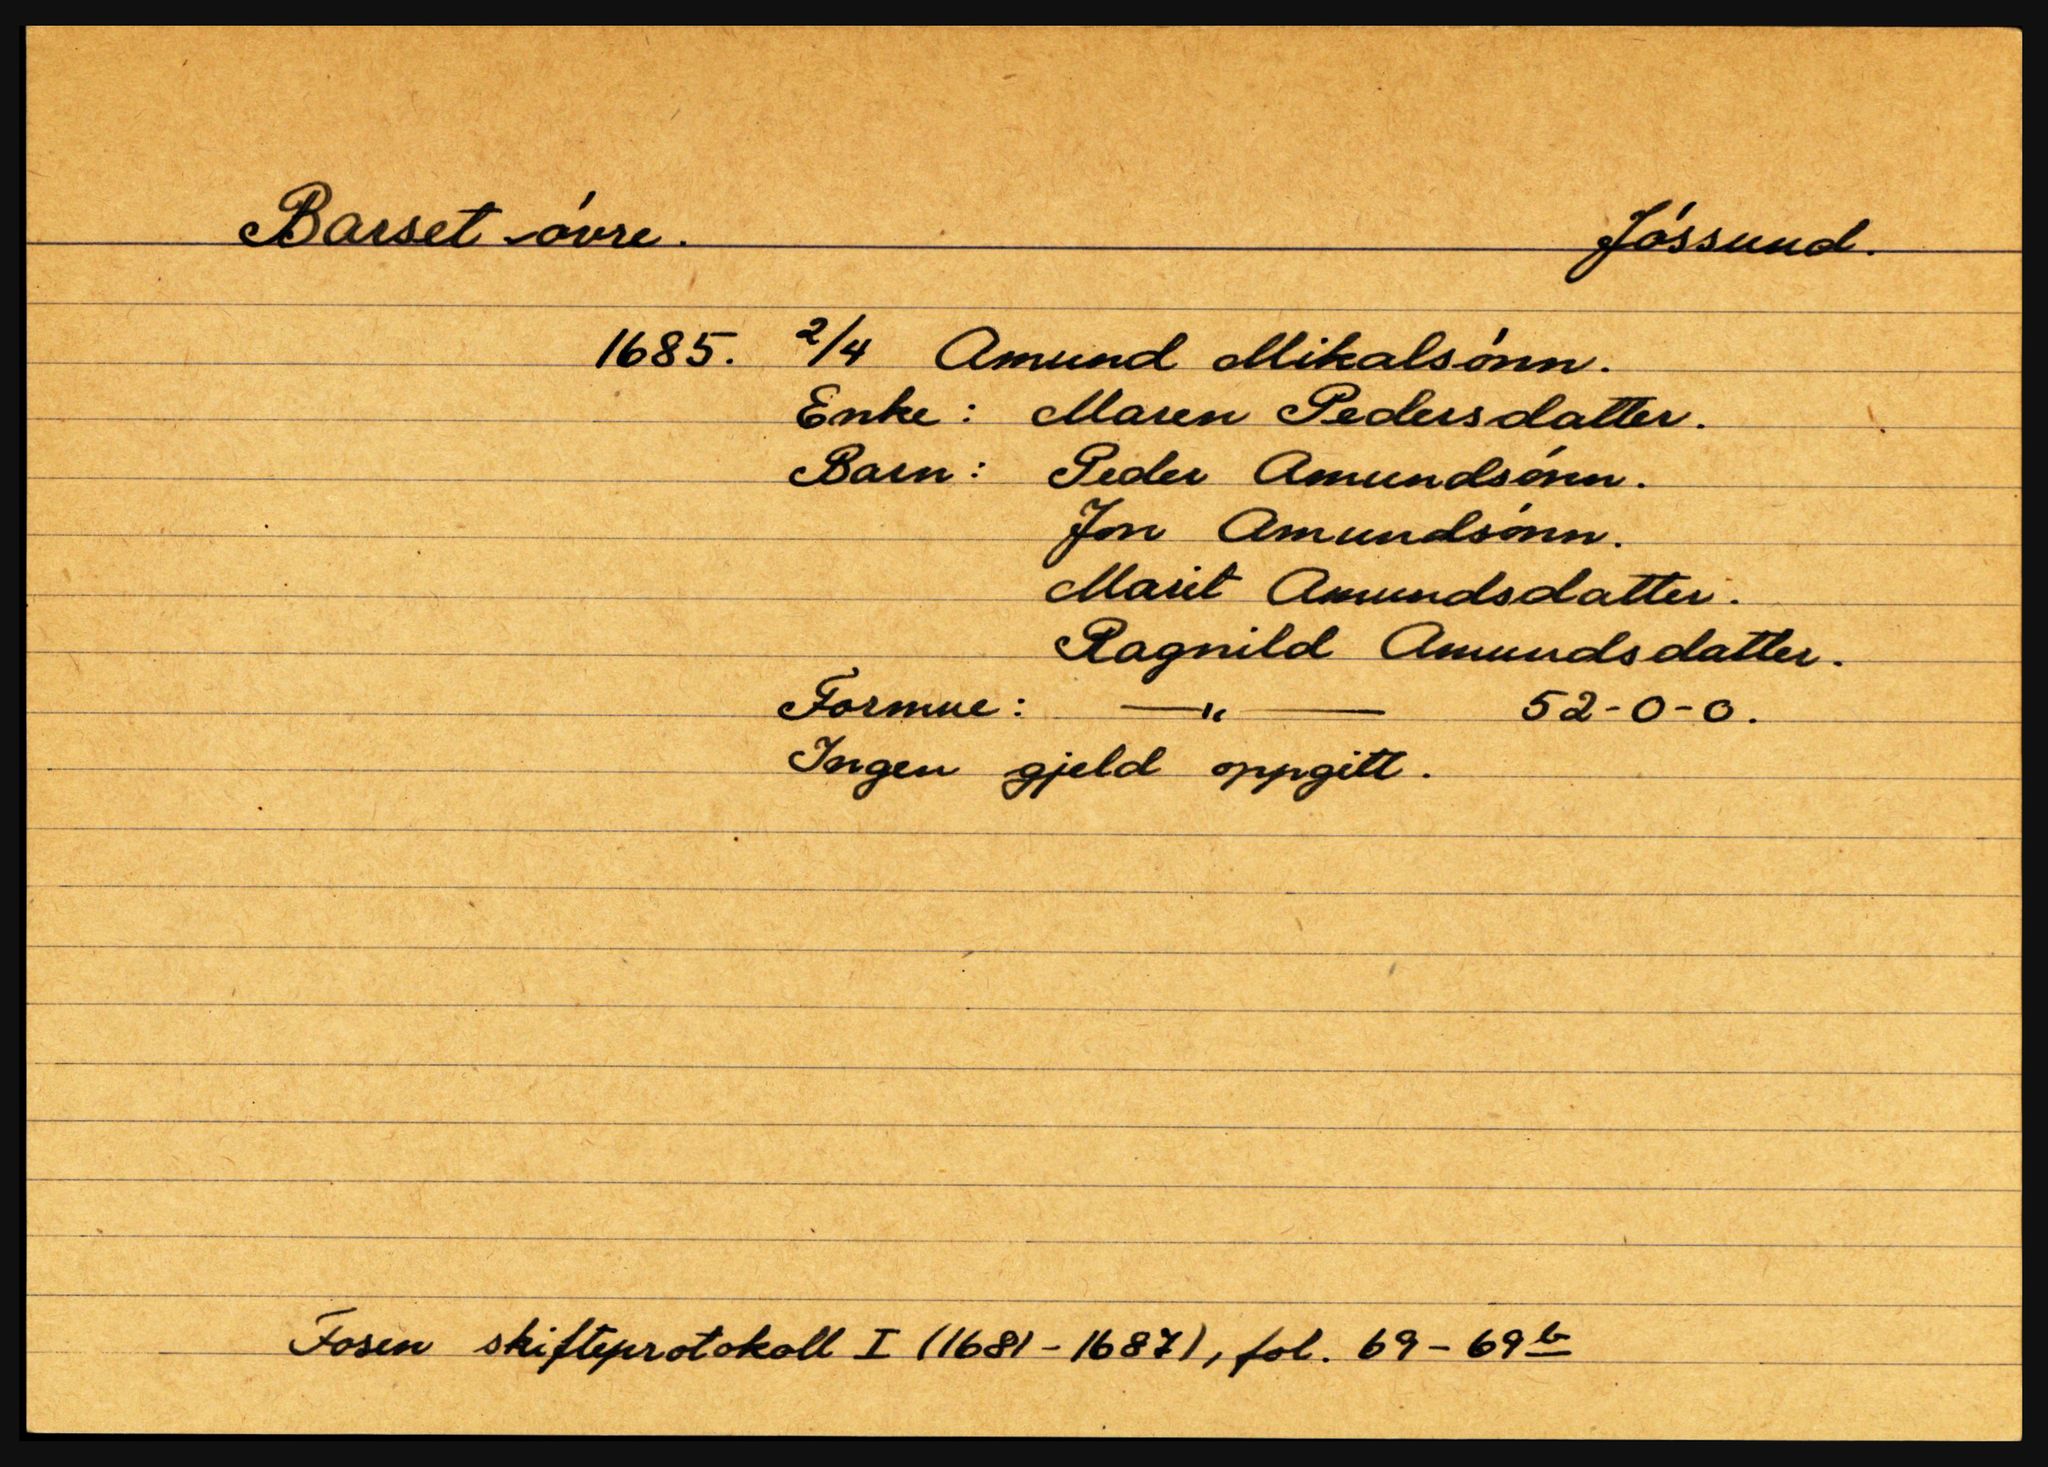 Barset - óvre. Jóssund.
1685. 2/4 Amund Mikalsónn.
Enke: Maren Pedersdatter.
Barn: Peder Amundsónn.
Jon Amundsónn.
Marit Amundsdatter.
Ragnild Amundsdatter.
Formue: —"— 52-0-0.
Ingen gjeld oppgitt.
Fosen skifteprotokoll I (1681-1687), fol. 69-69b